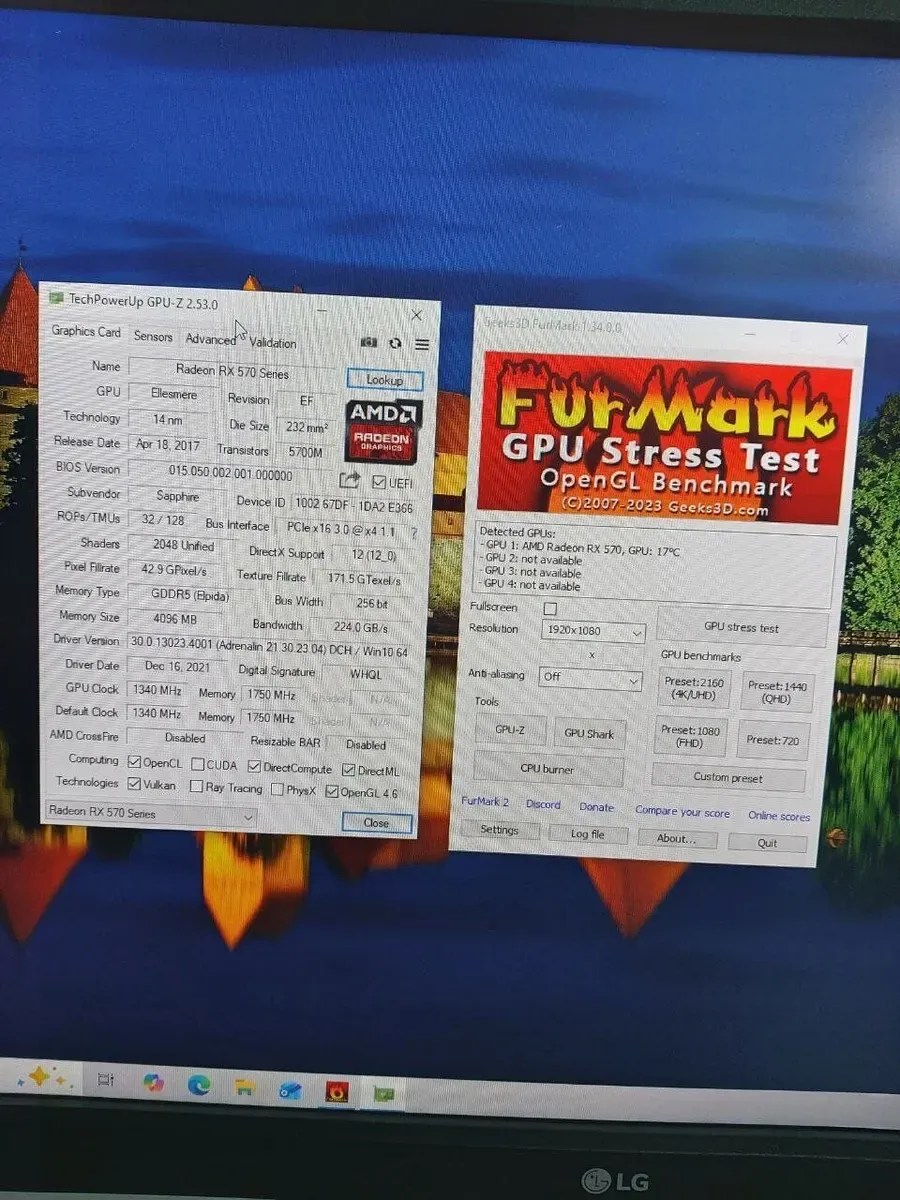 TechPowerUp GPU-Z 2.53.0
Graphics Card Sensors Advanced Validation
Name Radeon RX 570 Series Lookup
GPU Ellesmere Revision EF
Technology 14 nm Die Size 232 mm²
Release Date Apr 18, 2017 Transistors 5700M
BIOS Version 015.050.002.001.000000 UEFI
Subvendor Sapphire Device ID 1002 67DF - 1DA2 E366
ROPs/TMUs 32 / 128 Bus Interface PCIe x16 3.0 @ x4 1.1 ?
Shaders 2048 Unified DirectX Support 12 (12_0)
Pixel Fillrate 42.9 GPixel/s Texture Fillrate 171.5 GTexel/s
Memory Type GDDR5 (Elpida) Bus Width 256 bit
Memory Size 4096 MB Bandwidth 224.0 GB/s
Driver Version 30.0.13023.4001 (Adrenalin 21.30.23.04) DCH / Win10 64
Driver Date Dec 16, 2021 Digital Signature WHQL
GPU Clock 1340 MHz Memory 1750 MHz Shader N/A
Default Clock 1340 MHz Memory 1750 MHz Shader N/A
AMD CrossFire Disabled Resizable BAR Disabled
Computing OpenCL CUDA DirectCompute DirectML
Technologies Vulkan Ray Tracing PhysX OpenGL 4.6
Radeon RX 570 Series Close
AMD
RADEON
GRAPHICS
Geeks3D FurMark 1.34.0.0
FurMark
GPU Stress Test
OpenGL Benchmark
(C)2007-2023 Geeks3D.com
Detected GPUs:
- GPU 1: AMD Radeon RX 570, GPU: 17°C
- GPU 2: not available
- GPU 3: not available
- GPU 4: not available
Fullscreen
Resolution 1920x1080 GPU stress test
x
GPU benchmarks
Anti-aliasing Off
Preset:2160
(4K/UHD)
Preset:1440
(QHD)
Tools
GPU-Z GPU Shark
Preset:1080
(FHD)
Preset:720
CPU burner Custom preset
FurMark 2 Discord Donate Compare your score Online scores
Settings Log file About... Quit
LG